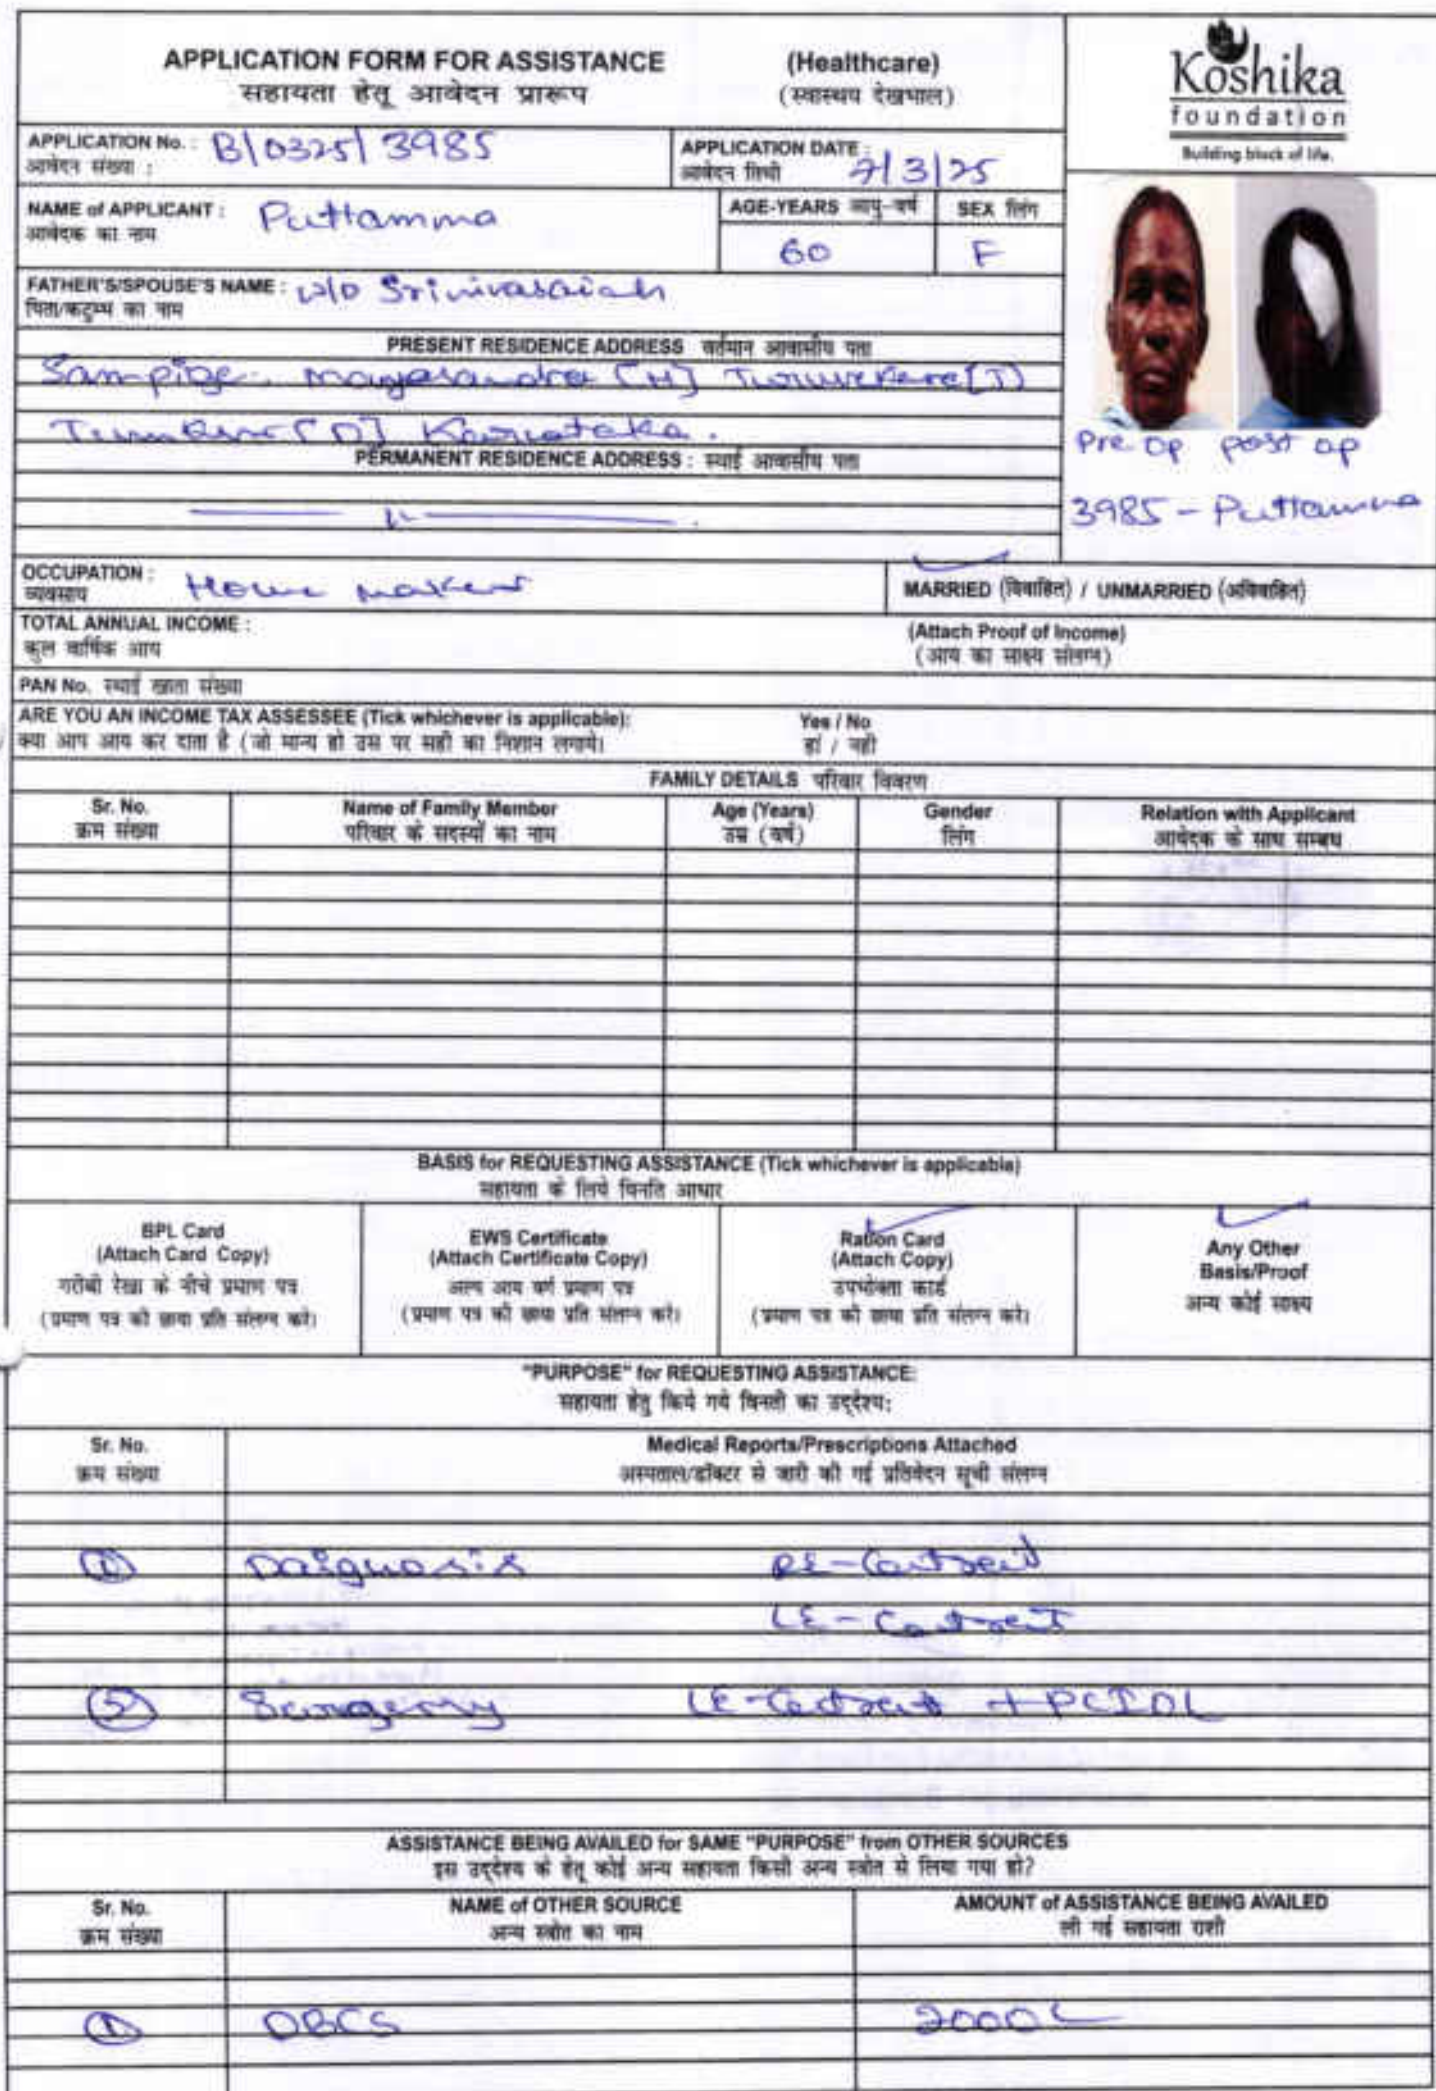 APPLICATION FORM FOR ASSISTANCE (Healthcare)
सहायता हेतू आवेदन प्रारूप (स्वास्थय देखभाल)
Koshika
foundation
Building block of life.
APPLICATION No. : B/0325/3985
आवेदन संख्या :
APPLICATION DATE : 7/3/25
आवेदन तिथी
NAME of APPLICANT : Puttamma
आवेदक का नाम
AGE-YEARS आयु-वर्ष SEX लिंग
60 F
FATHER'S/SPOUSE'S NAME : W/o Srinivasaiah
पिता/कटुम्भ का नाम
PRESENT RESIDENCE ADDRESS वर्तमान आवासीय पता
Sampige. Mayasandra [H] Turuvekere [T]
Tumkur [D] Karnataka.
PERMANENT RESIDENCE ADDRESS : स्थाई आवासीय पता
Pre op post op
3985 - Puttamma
OCCUPATION : Home maker
व्यवसाय
MARRIED (विवाहित) / UNMARRIED (अविवाहित)
TOTAL ANNUAL INCOME : (Attach Proof of Income)
कुल वार्षिक आय (आय का साक्ष्य संलग्न)
PAN No. स्थाई खाता संख्या
ARE YOU AN INCOME TAX ASSESSEE (Tick whichever is applicable): Yes / No
क्या आप आय कर दाता है (जो मान्य हो उस पर सही का निशान लगाये। हां / नही
FAMILY DETAILS परिवार विवरण
Sr. No. Name of Family Member Age (Years) Gender Relation with Applicant
क्रम संख्या परिवार के सदस्यों का नाम उम्र (वर्ष) लिंग आवेदक के साथ सम्बध
BASIS for REQUESTING ASSISTANCE (Tick whichever is applicable)
सहायता के लिये विनति आधार
BPL Card
(Attach Card Copy)
गरीबी रेखा के नीचे प्रमाण पत्र
(प्रमाण पत्र की छाया प्रति संलग्न करे।
EWS Certificate
(Attach Certificate Copy)
अल्प आय वर्ग प्रमाण पत्र
(प्रमाण पत्र की छाया प्रति संलग्न करे।
Ration Card
(Attach Copy)
उपभोक्ता कार्ड
(प्रमाण पत्र की छाया प्रति संलग्न करे।
Any Other
Basis/Proof
अन्य कोई साक्ष्य
"PURPOSE" for REQUESTING ASSISTANCE:
सहायता हेतु किये गये विनती का उद्देश्य:
Sr. No. Medical Reports/Prescriptions Attached
क्रम संख्या अस्पताल/डॉक्टर से जारी की गई प्रतिवेदन सूची संलग्न
1 Daignosis RE-Cataract
LE-Cataract
2 Surgery LE-Cataract + PCIOL
ASSISTANCE BEING AVAILED for SAME "PURPOSE" from OTHER SOURCES
इस उद्देश्य के हेतू कोई अन्य सहायता किसी अन्य स्त्रोत से लिया गया हो?
Sr. No. NAME of OTHER SOURCE AMOUNT of ASSISTANCE BEING AVAILED
क्रम संख्या अन्य स्त्रोत का नाम ली गई सहायता राशी
1 DBCS 2000/-